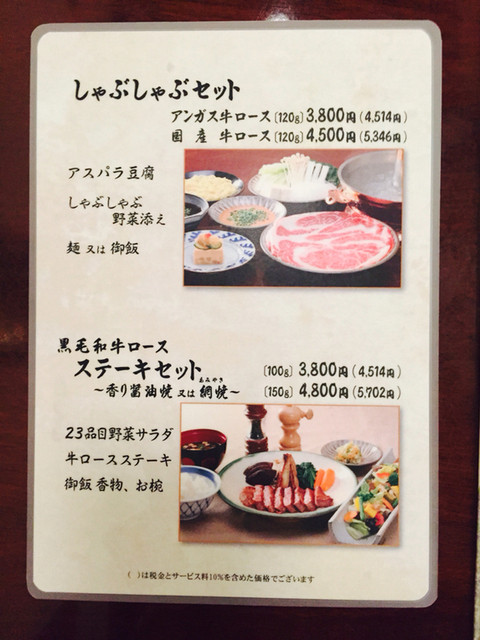 しゃぶしゃぶセット
アンガス牛ロース〔120g〕3,800円（4,514円）
国産 牛ロース〔120g〕4,500円（5,346円）
アスパラ豆腐
しゃぶしゃぶ
野菜添え
麺 又は 御飯
黒毛和牛ロース
ステーキセット 〔100g〕3,800円（4,514円）
あみやき
～香り醤油焼 又は 網焼～ 〔150g〕4,800円（5,702円）
23品目野菜サラダ
牛ロースステーキ
御飯 香物、お椀
（ ）は税金とサービス料10%を含めた価格でございます